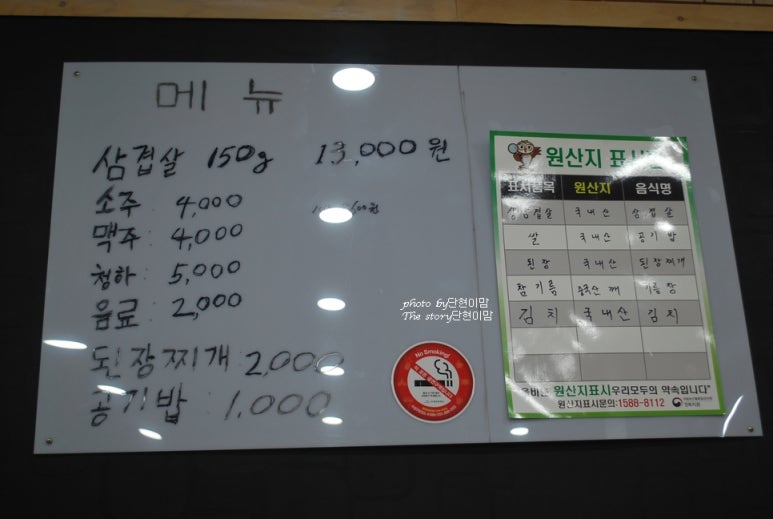 메뉴
삼겹살 150g 13,000원
소주 : 4,000
맥주 : 4,000
청하 : 5,000
음료 : 2,000
된장찌개 : 2,000
공기밥 : 1,000
photo by단현이맘
The story단현이맘
No Smoking!
원산지 표시판
표시품목 원산지 음식명
생삼겹살 국내산 삼겹살
쌀 국내산 공기밥
된장 국내산 된장찌개
참기름 중국산 깨 기름장
김치 국내산 김치
원산지표시 우리모두의 약속입니다"
원산지표시문의:1588-8112